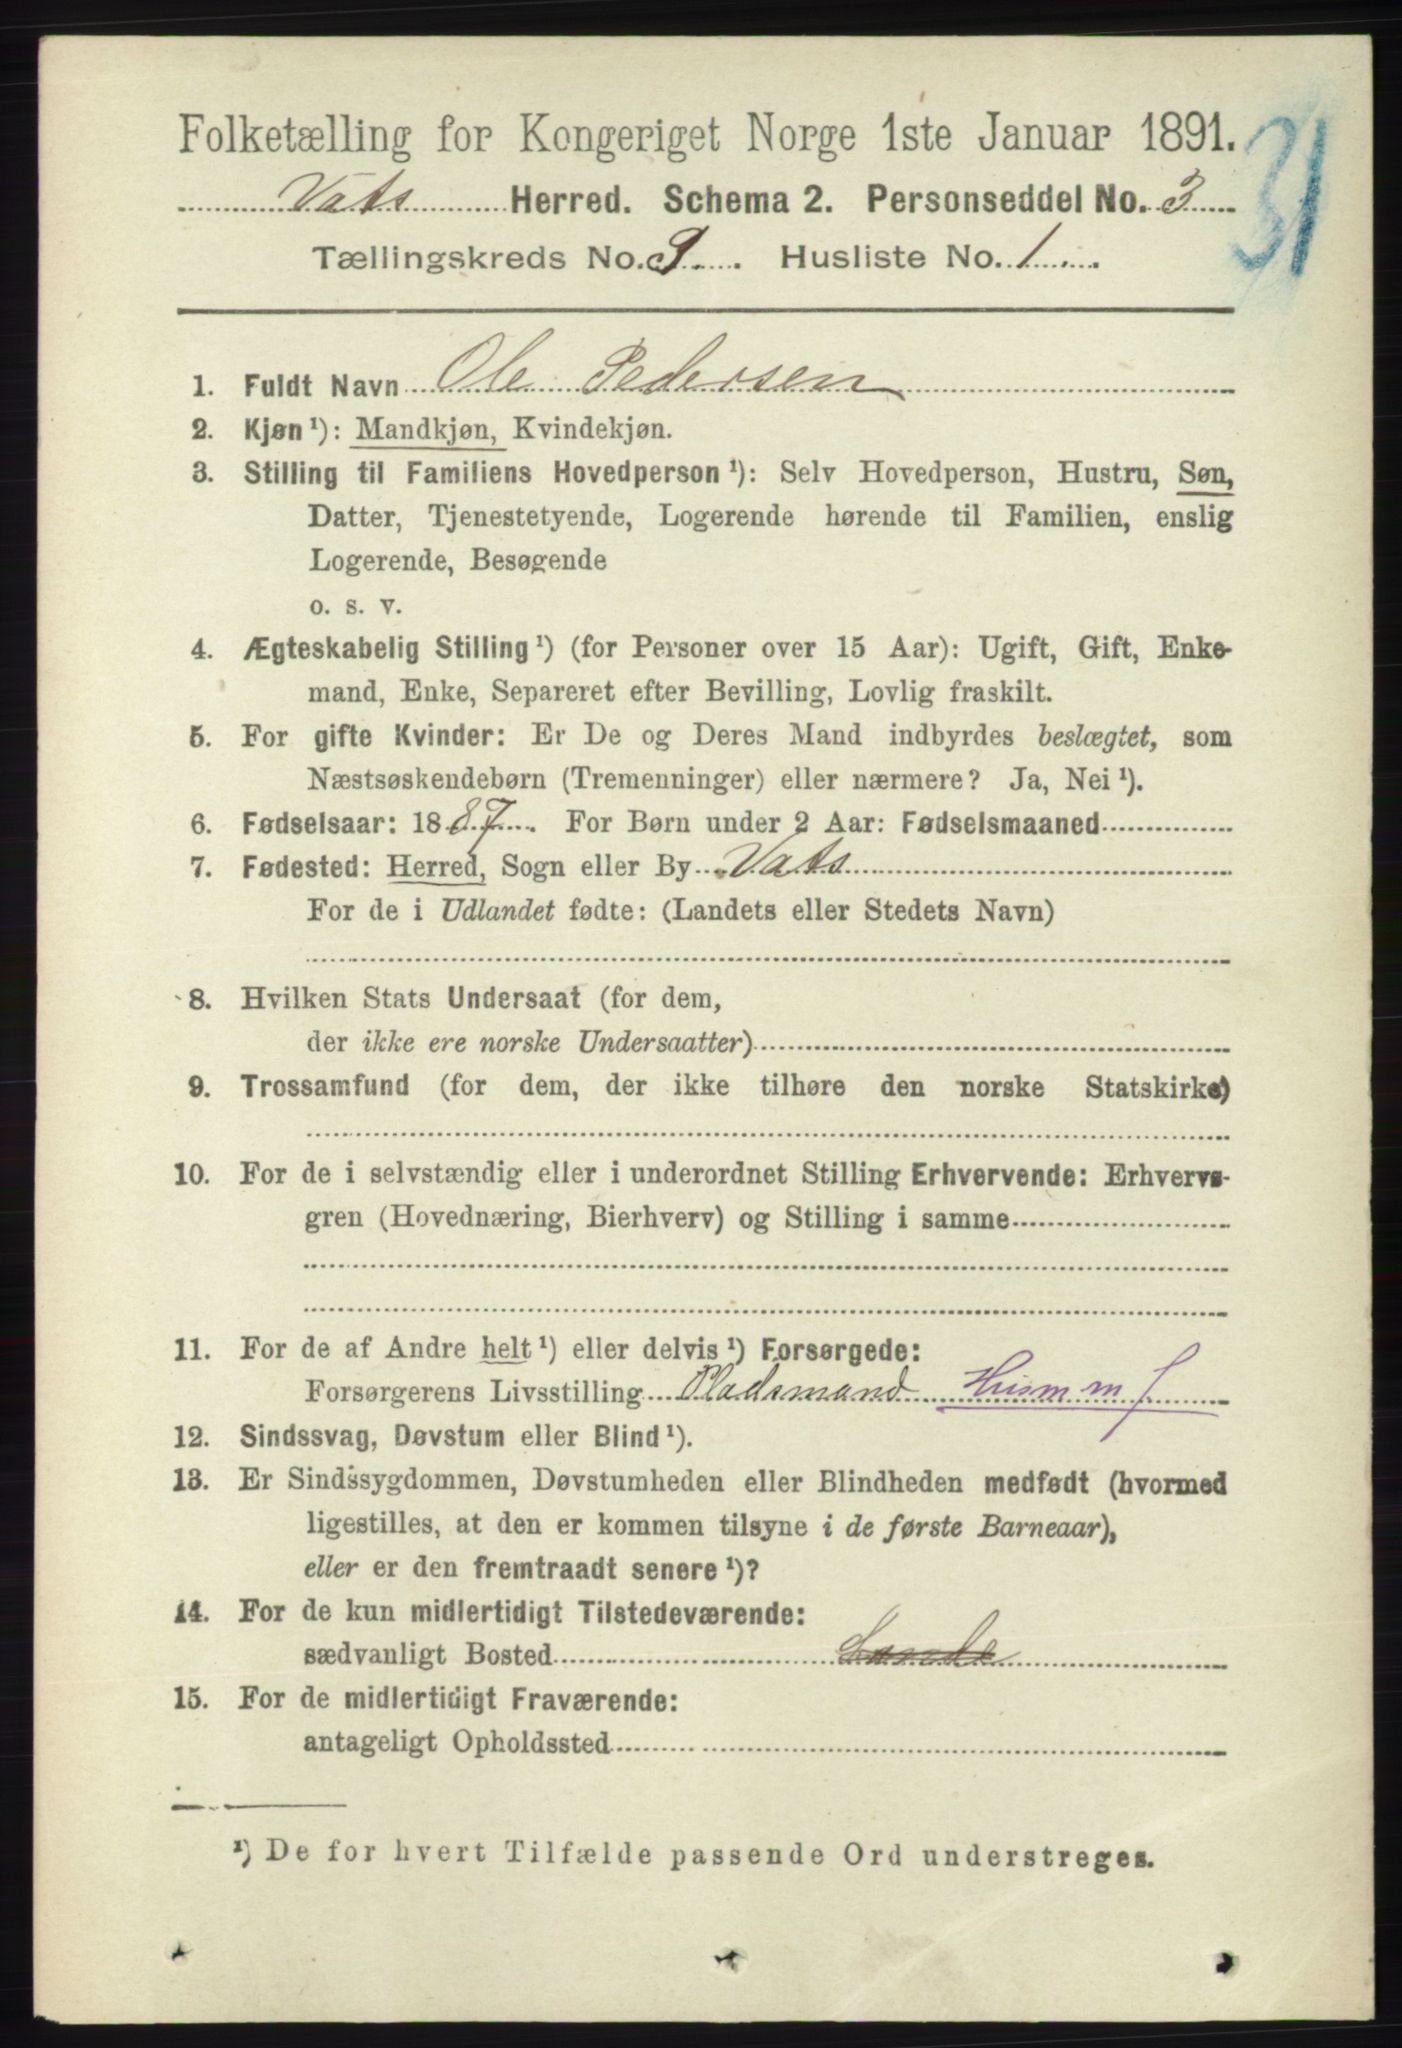 Folketælling for Kongeriget Norge 1ste Januar 1891.
31
Vats Herred. Schema 2. Personseddel No. 3
Tællingskreds No. 9. Husliste No. 1
1. Fuldt Navn Ole Pedersen
2. Kjøn¹): Mandkjøn, Kvindekjøn.
3. Stilling til Familiens Hovedperson¹): Selv Hovedperson, Hustru, Søn,
Datter, Tjenestetyende, Logerende hørende til Familien, enslig
Logerende, Besøgende
o. s. v.
4. Ægteskabelig Stilling¹) (for Personer over 15 Aar): Ugift, Gift, Enke-
mand, Enke, Separeret efter Bevilling, Lovlig fraskilt.
5. For gifte Kvinder: Er De og Deres Mand indbyrdes beslægtet, som
Næstsøskendebørn (Tremenninger) eller nærmere? Ja, Nei¹).
6. Fødselsaar: 1887. For Børn under 2 Aar: Fødselsmaaned
7. Fødested: Herred, Sogn eller By Vats
For de i Udlandet fødte: (Landets eller Stedets Navn)
8. Hvilken Stats Undersaat (for dem,
der ikke ere norske Undersaatter)
9. Trossamfund (for dem, der ikke tilhøre den norske Statskirke)
10. For de i selvstændig eller i underordnet Stilling Erhvervende: Erhvervs-
gren (Hovednæring, Bierhverv) og Stilling i samme
11. For de af Andre helt¹) eller delvis¹) Forsørgede:
Forsørgerens Livsstilling Pladsmand Husm m J
12. Sindssvag, Døvstum eller Blind¹).
13. Er Sindssygdommen, Døvstumheden eller Blindheden medfødt (hvormed
ligestilles, at den er kommen tilsyne i de første Barneaar),
eller er den fremtraadt senere¹)?
14. For de kun midlertidigt Tilstedeværende:
sædvanligt Bosted
15. For de midlertidigt Fraværende:
antageligt Opholdssted
¹) De for hvert Tilfælde passende Ord understreges.